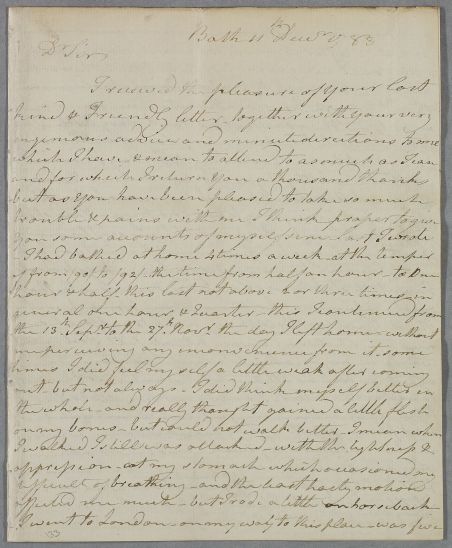 Bath 11th Decr. 1783
Dr Sir
I received the pleasure of your last
kind & Friendly letter, together with your very
ingenious advice and minute directions to me
which I have & mean to attend to as much as I can
and for which I return you a thousand thanks
but as you have been pleased to take so much
trouble & pains with me I think proper to give
you some accounts of myself since I wrote
I had bathed at home 4 times a week at the temper
of from 90 to 92 the time from half an hour to One
hour & half this last not above 2 or three times in
general one hour & Quarter this I continued from
the 13th Sepr to the 27th Novr the day I left home without
me perceiving any inconvenience from it some
times I did feel myself a little weak after coming
out but not always I did think myself better on
the whole and really thought gained a little flesh
on my bones but could not walk better I mean when
I walked I still was attacked with the tightness &
oppression at my stomach which occasioned me
difficult of breathing and the least hasty motion
affected me much but I rode a little on horseback
I went to London on my way to this place was five
133